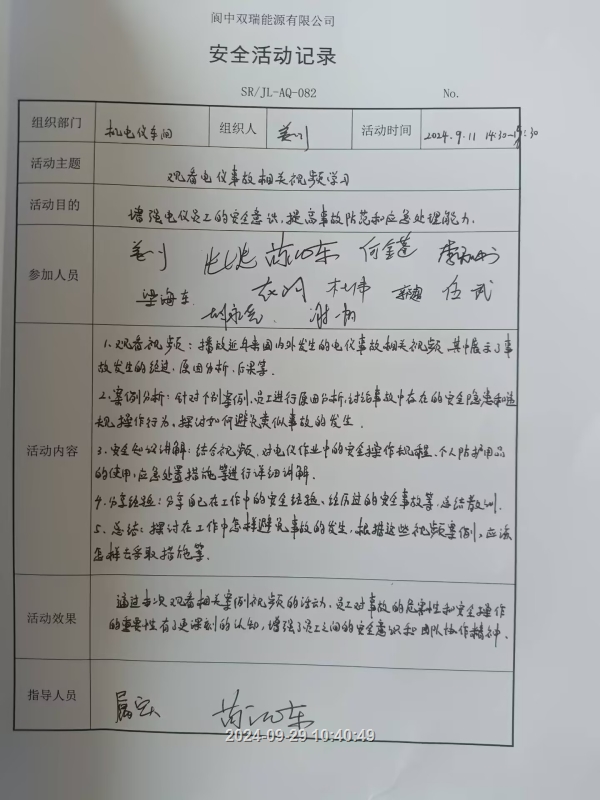 阆中双瑞能源有限公司
安全活动记录
SR/JL-AQ-082 No.
组织部门 机电仪车间 组织人 姜川 活动时间 2024.9.11 14:30-15:30
活动主题 观看电仪事故相关视频学习
活动目的 增强电仪员工的安全意识,提高事故防范和应急处理能力.
姜川 何金蓬
参加人员
梁海东 杜伟 任武
1.观看视频:播放近年来国内外发生的电仪事故相关视频,其中展示了事
故发生的经过,原因分析,后果等.
2.案例分析:针对个别案例,员工进行原因分析,讨论事故中存在的安全隐患和违
规操作行为,探讨如何避免类似事故的发生.
活动内容
3.安全知识讲解:结合视频,对电仪作业中的安全操作规程、个人防护用品
的使用,应急处置措施等进行详细讲解.
4.分享经验:分享自己在工作中的安全经验、经历过的安全事故等,总结教训.
5.总结:探讨在工作中怎样避免事故的发生,根据这些视频案例,应该
怎样去采取措施等.
通过本次观看相关案例视频的活动,员工对事故的危害性和安全操作
活动效果
的重要性有了更深刻的认知,增强了员工之间的安全意识和团队协作精神.
指导人员
2024-09-29 10:40:49